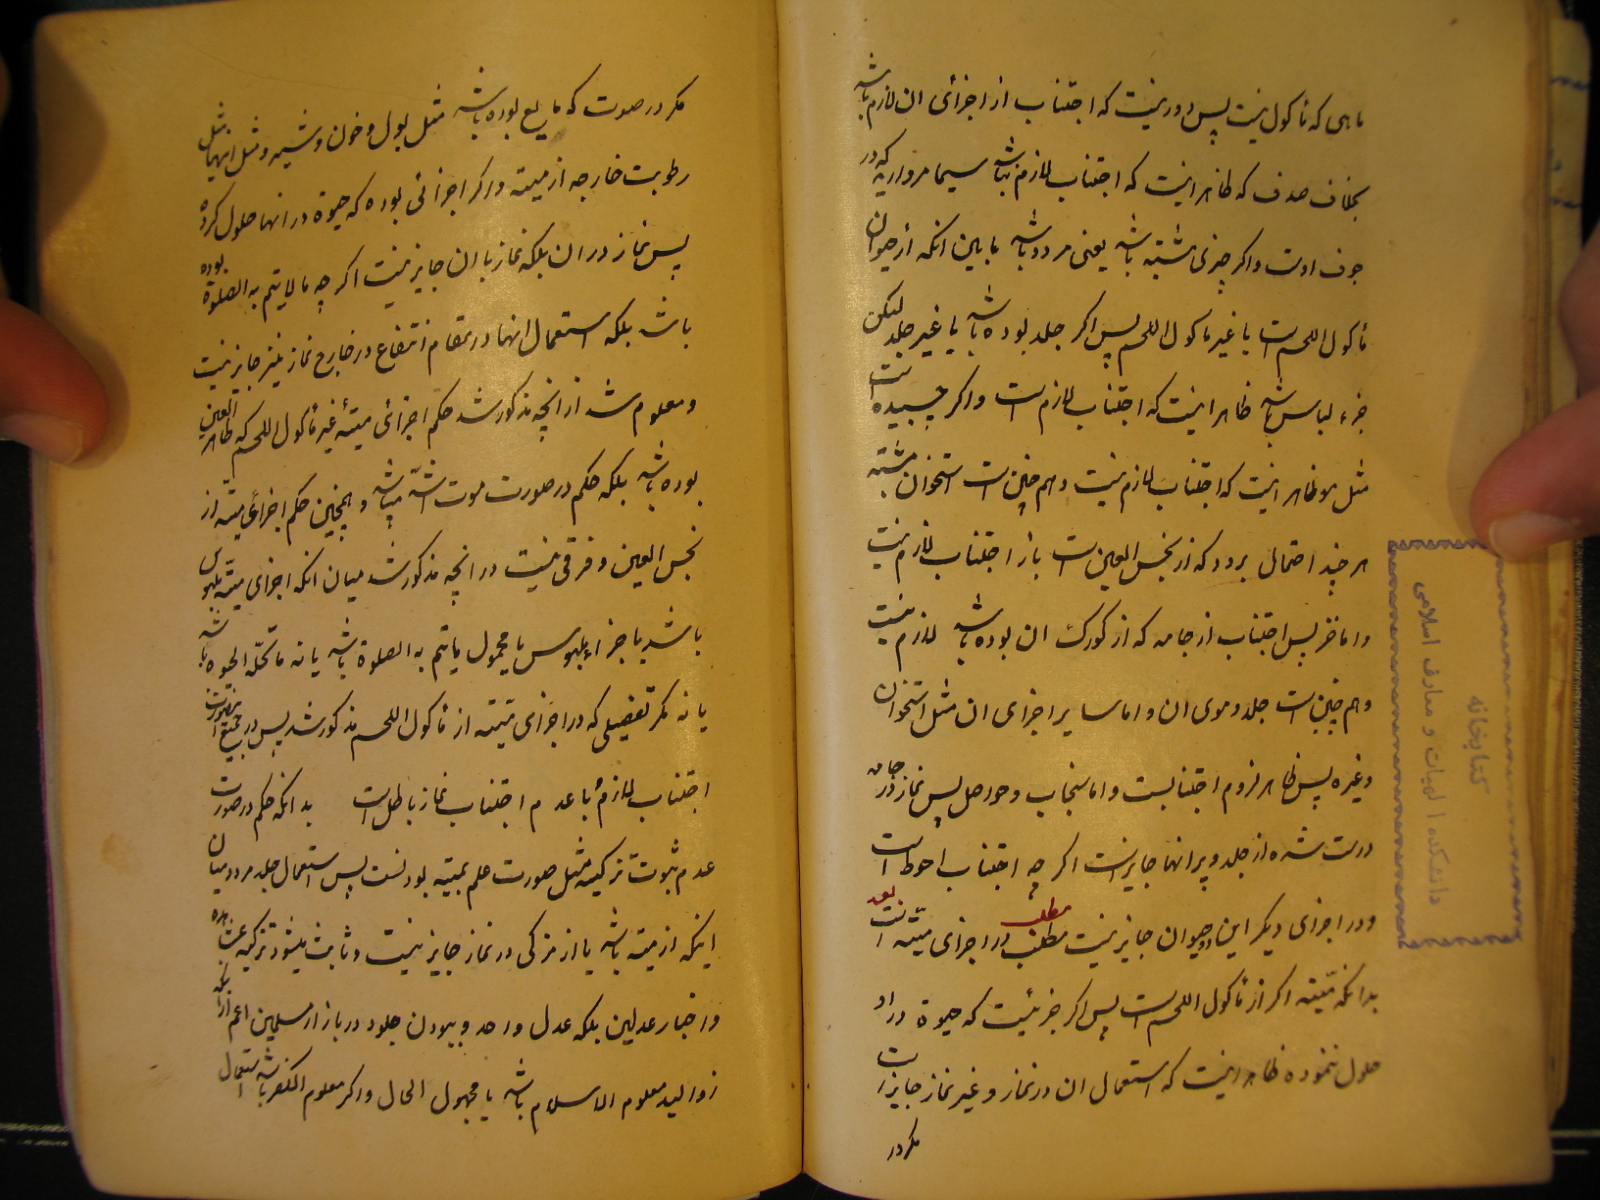 ماهی که مأکول نیست پس دور نیست که اجتناب از اجزای ان لازم باشد
بخلاف صدف که ظاهر اینست که اجتناب لازم نباشد سیما مرواریدیکه در
جوف اوست و اکر چیزی مشتبه باشد یعنی مردد باشد ما بین انکه از حیوان
مأکول اللحم است یا غیر مأکول اللحم پس اکر جلد بوده باشد یا غیر جلد لیکن
جزء لباس باشد ظاهر اینست که اجتناب لازم است و اکر چسبیده است
مثل مو ظاهر اینست که اجتناب لازم نیست و هم چنین است استخوان مشتبه
هر چند احتمال برود که از نجس العین است باز اجتناب لازم نیست
و اما خز پس اجتناب از جامه که از کورک ان بوده باشد لازم نیست
و هم چنین است جلد و موی ان و اما سایر اجزای ان مثل استخوان
و غیره پس ظاهر لزوم اجتنابست و اما سنجاب و حواصل پس نماز در جامه
درست شده از جلد و پر انها جایز است اکر چه اجتناب احوط است
و در اجزای دیکر این دو حیوان جایز نیست مطلب مطلب در اجزای میته است
بدانکه میته اکر از مأکول اللحم است پس اکر جزئیست که حیوة در او
حلول ننموده ظاهر اینست که استعمال ان در نماز و غیر نماز جایز است
مکر در
مکر در صورت که مایع بوده باشد مثل بول و خون و شیر و مثل اینها مثل
رطوبت خارجه از میته و اکر اجزائی بوده که حیوة در انها حلول کرده بوده
پس نماز در ان بلکه نماز با ان جایز نیست اکر چه ما لا یتم به الصلوة
باشد بلکه استعمال انها در مقام انتفاع در خارج نماز نیز جایز نیست
و معلوم شد از انچه مذکور شد حکم اجزای میتهٔ غیر مأکول اللحم که طاهر العین
بوده باشد بلکه حکم در صورت موت اشد میباشد و همچنین حکم اجزای میته از
نجس العین و فرقی نیست در انچه مذکور شد میان انکه اجزای میته ملبوس
باشد یا جزء ملبوس یا محمول یا یتم به الصلوة باشد یا نه ما تحله الحیوة باشد
یا نه مکر تفصیلی که در اجزای میته از مأکول اللحم مذکور شد پس در جمیع این صورت
اجتناب لازم و با عدم اجتناب نماز باطل است بدانکه حکم در صورت
عدم ثبوت تزکیه مثل صورت علم بمیته بودنست پس استعمال جلد مردد میان
اینکه از میته باشد یا از مزکی در نماز جایز نیست و ثابت میشود تزکیه
و اخبار عدلین بلکه عدل واحد و ببودن جلود در بازار مسلمین اعم از انکه
ذو الید معلوم الاسلام باشد یا مجهول الحال و اکر معلوم الکفر باشد استعمال
کتابخانه
دانشکده الهیات و معارف اسلامی